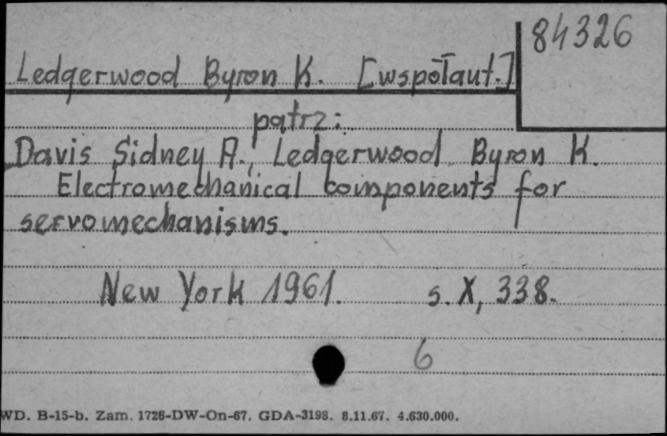 84326
Ledgerwood Byron K. [współaut.]
patrz:
Davis Sidney A., Ledgerwood Byron K.
Electromechanical components for
servomechanisms.
New York 1961. s. X, 338.
6
WD. B-15-b. Zam. 1726-DW-On-67. GDA-3198. 8.11.67. 4.630.000.